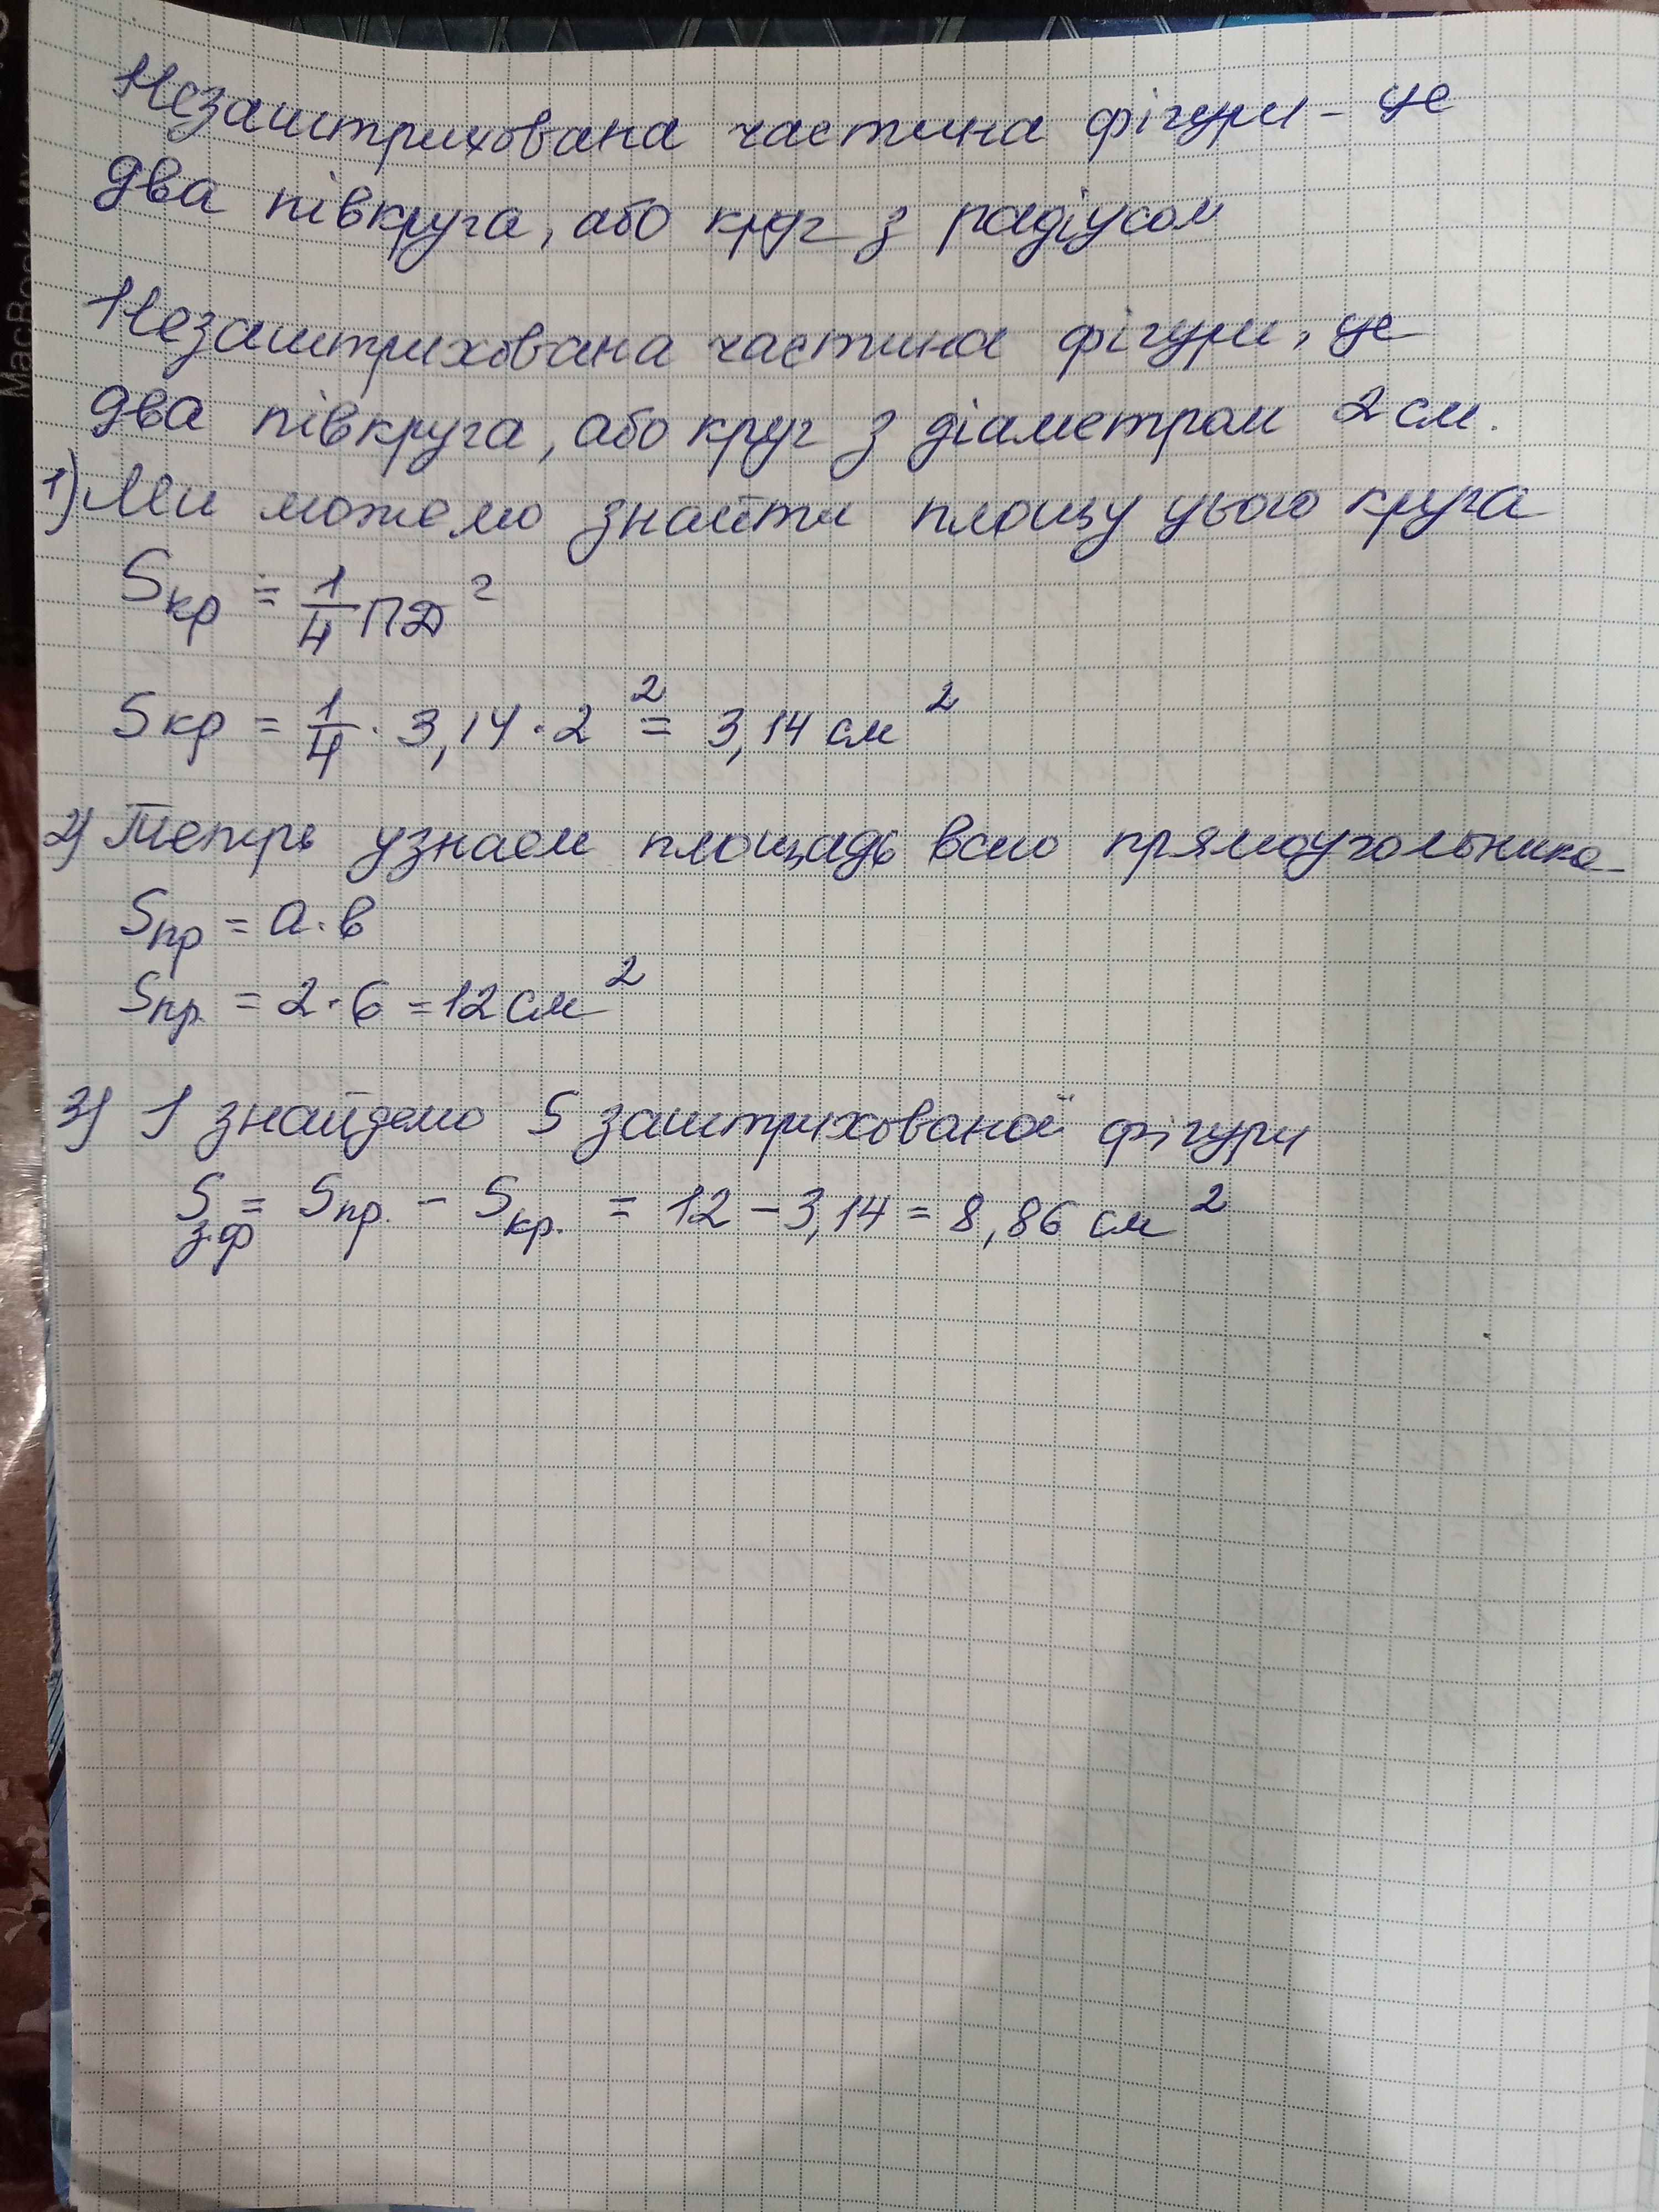 Незаштрихована частина фігури - це
два півкруга, або круг з радіусом
Незаштрихована частина фігури, це
два півкруга, або круг з діаметром 2 см.
1) Ми можемо знайти площу цього круга
Sкр = 1/4 ПД²
Sкр = 1/4 · 3,14 · 2² = 3,14 см²
2) Теперь узнаем площадь всио прямоугольника
Sпр = а · в
Sпр. = 2 · 6 = 12 см²
3) І знайдемо S заштрихованої фігури
Sз.ф = Sпр. - Sкр. = 12 - 3,14 = 8,86 см²
MacBook